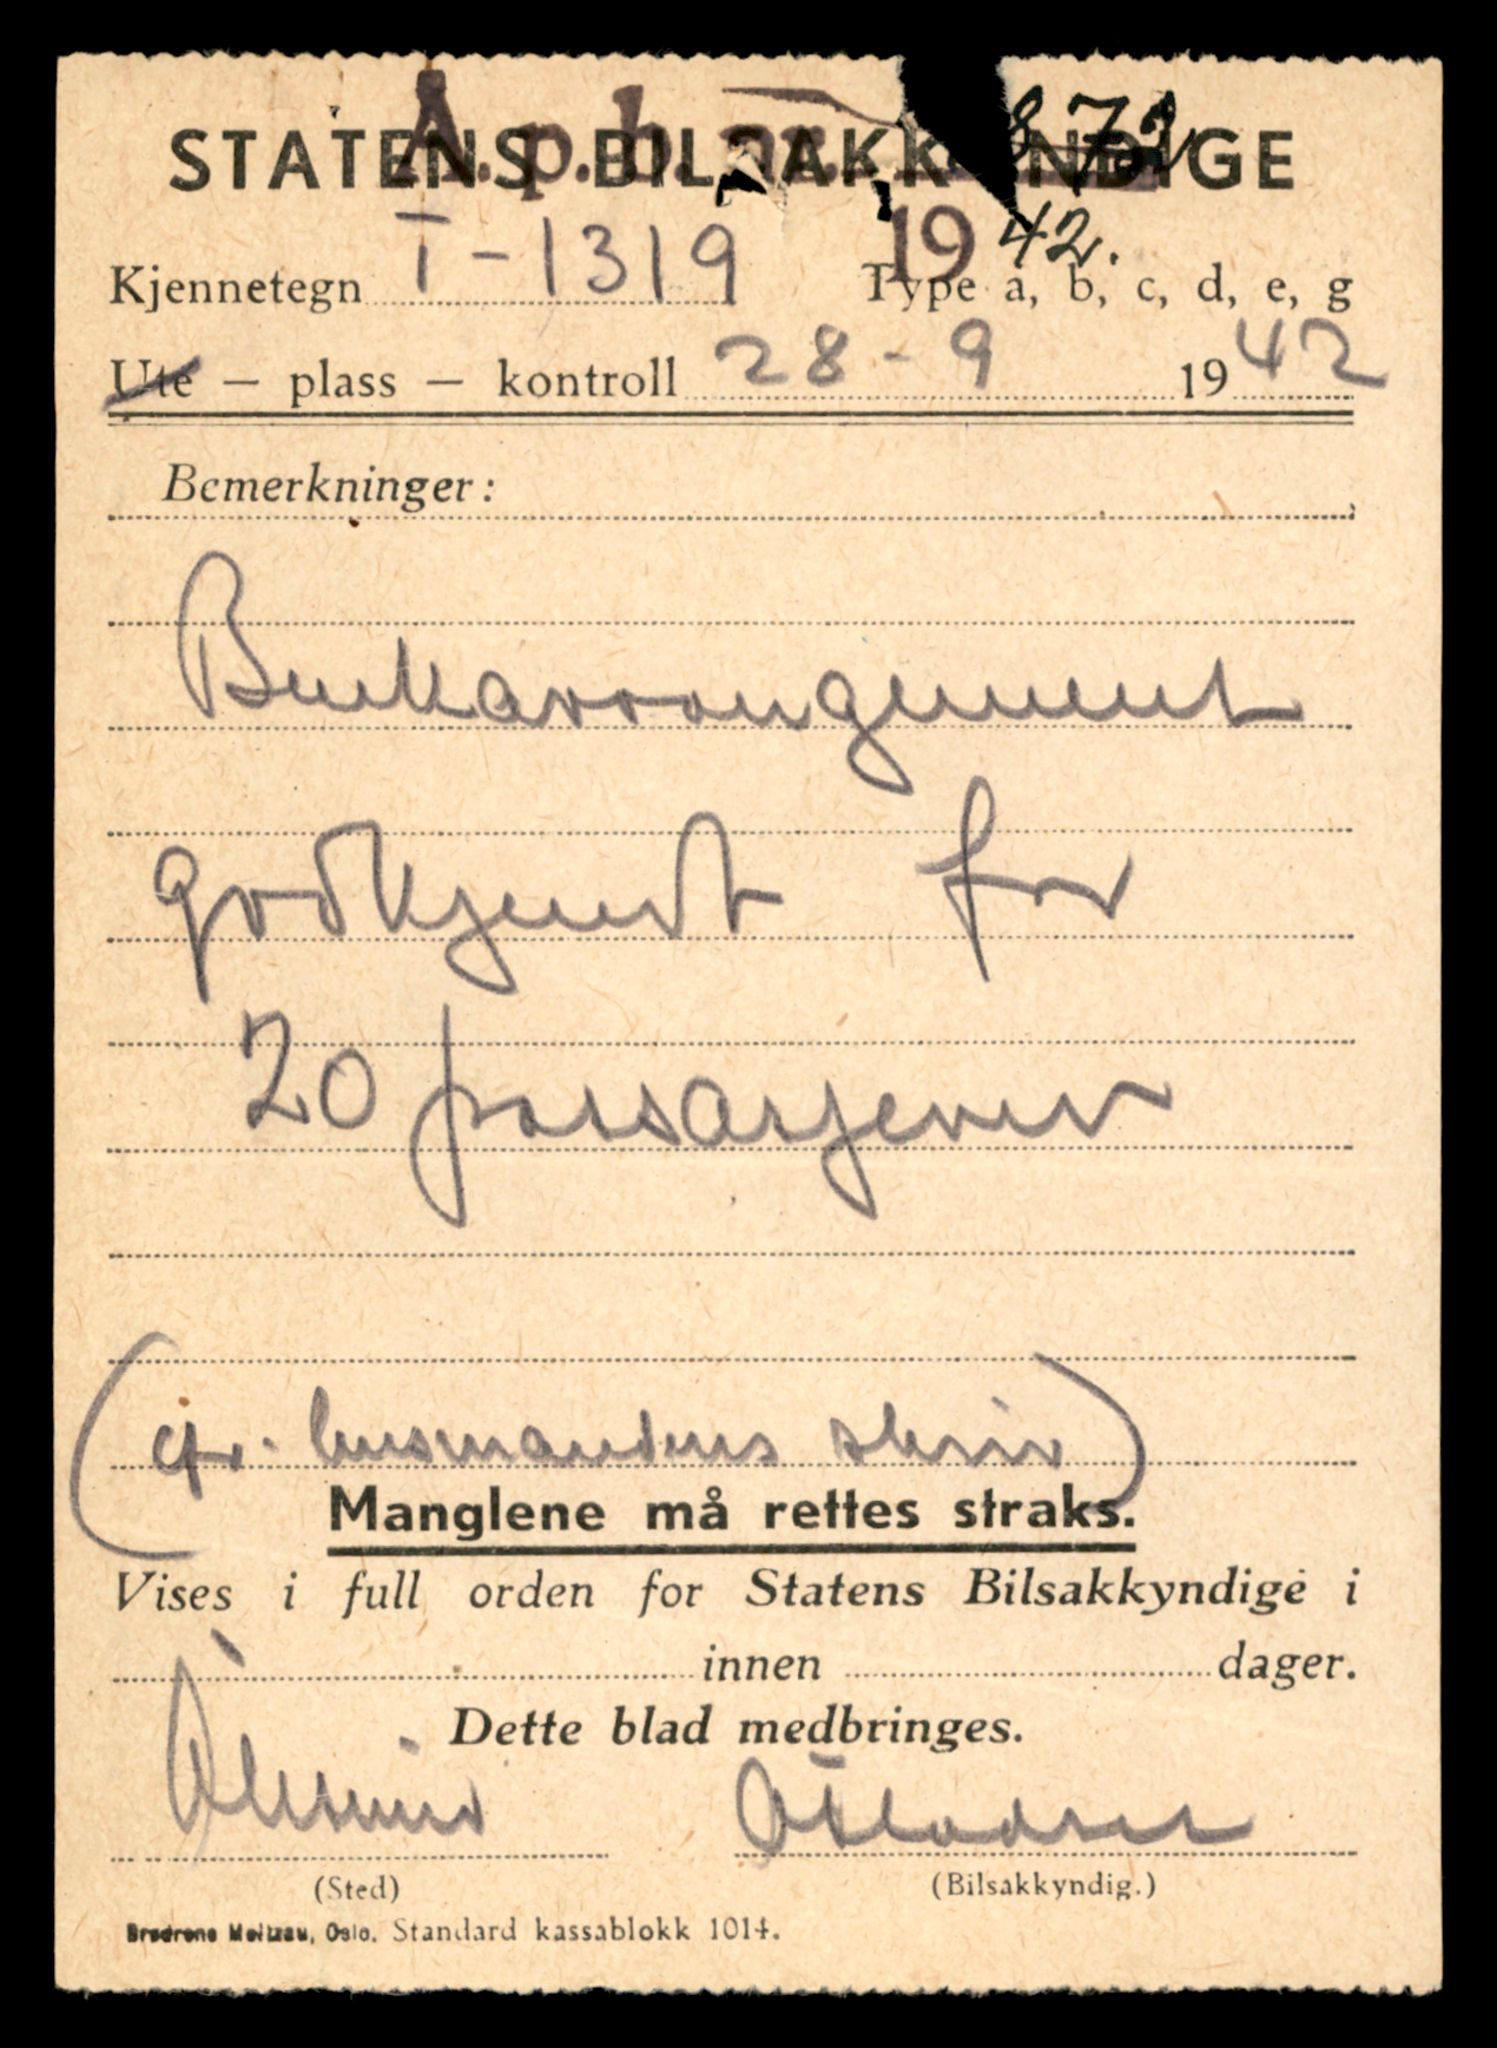 Å.p.b. nr. 872
STATENS BILSAKKYNDIGE
1942.
Kjennetegn T-1319 Type a, b, c, d, e, g
Ute — plass — kontroll 28-9 1942
Bemerkninger:
Benkarrangement
godkjendt for
20 passasjerer
(cfr. lensmandens skriv)
Manglene må rettes straks.
Vises i full orden for Statens Bilsakkyndige i
innen dager.
Dette blad medbringes.
Ålesund
(Sted) (Bilsakkyndig.)
Brødrene Meltzau, Oslo. Standard kassablokk 1014.